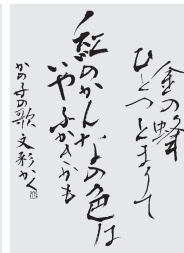 金の蜂
ひとつとまりて
紅のかんなの色は
いやふかきかも
かの子の歌 文彩かく